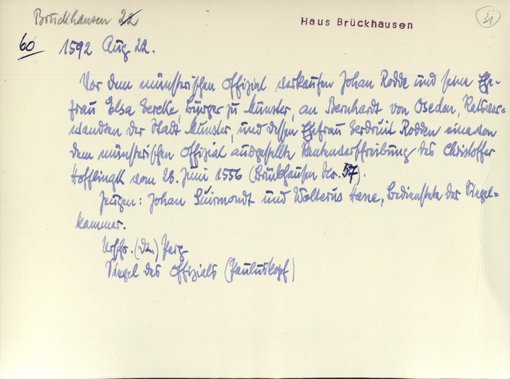 Bruckhausen 22
Haus Brückhausen
31
60 1592 Aug 22.
Vor dem münsterischen Offizial verkaufen Johan Rodde und seine Ehe-
frau Elsa Bürger zu Münster, an Bernhardt von Oseden, Ratsver-
wandten der Stadt Münster, und dessen Ehefrau Gerdruit Rodden eine von
dem münsterischen Offizial ausgestellte Rentenverschreibung des Christoffer
vom 28. Juni 1556 (Bruckhausen Nr. 37).
Zeugen: Johan und Wolterus Bedienstete der Siegel-
kammer.
Urschr. (Dt.) Perg.
Siegel des Offizials (Pauluskopf)